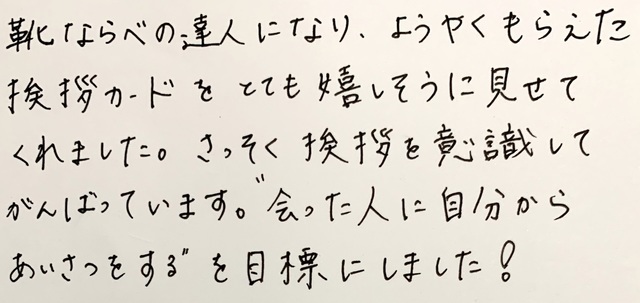 靴ならべの達人になり、ようやくもらえた
挨拶カードをとても嬉しそうに見せて
くれました。さっそく挨拶を意識して
がんばっています。"会った人に自分から
あいさつをする"を目標にしました！